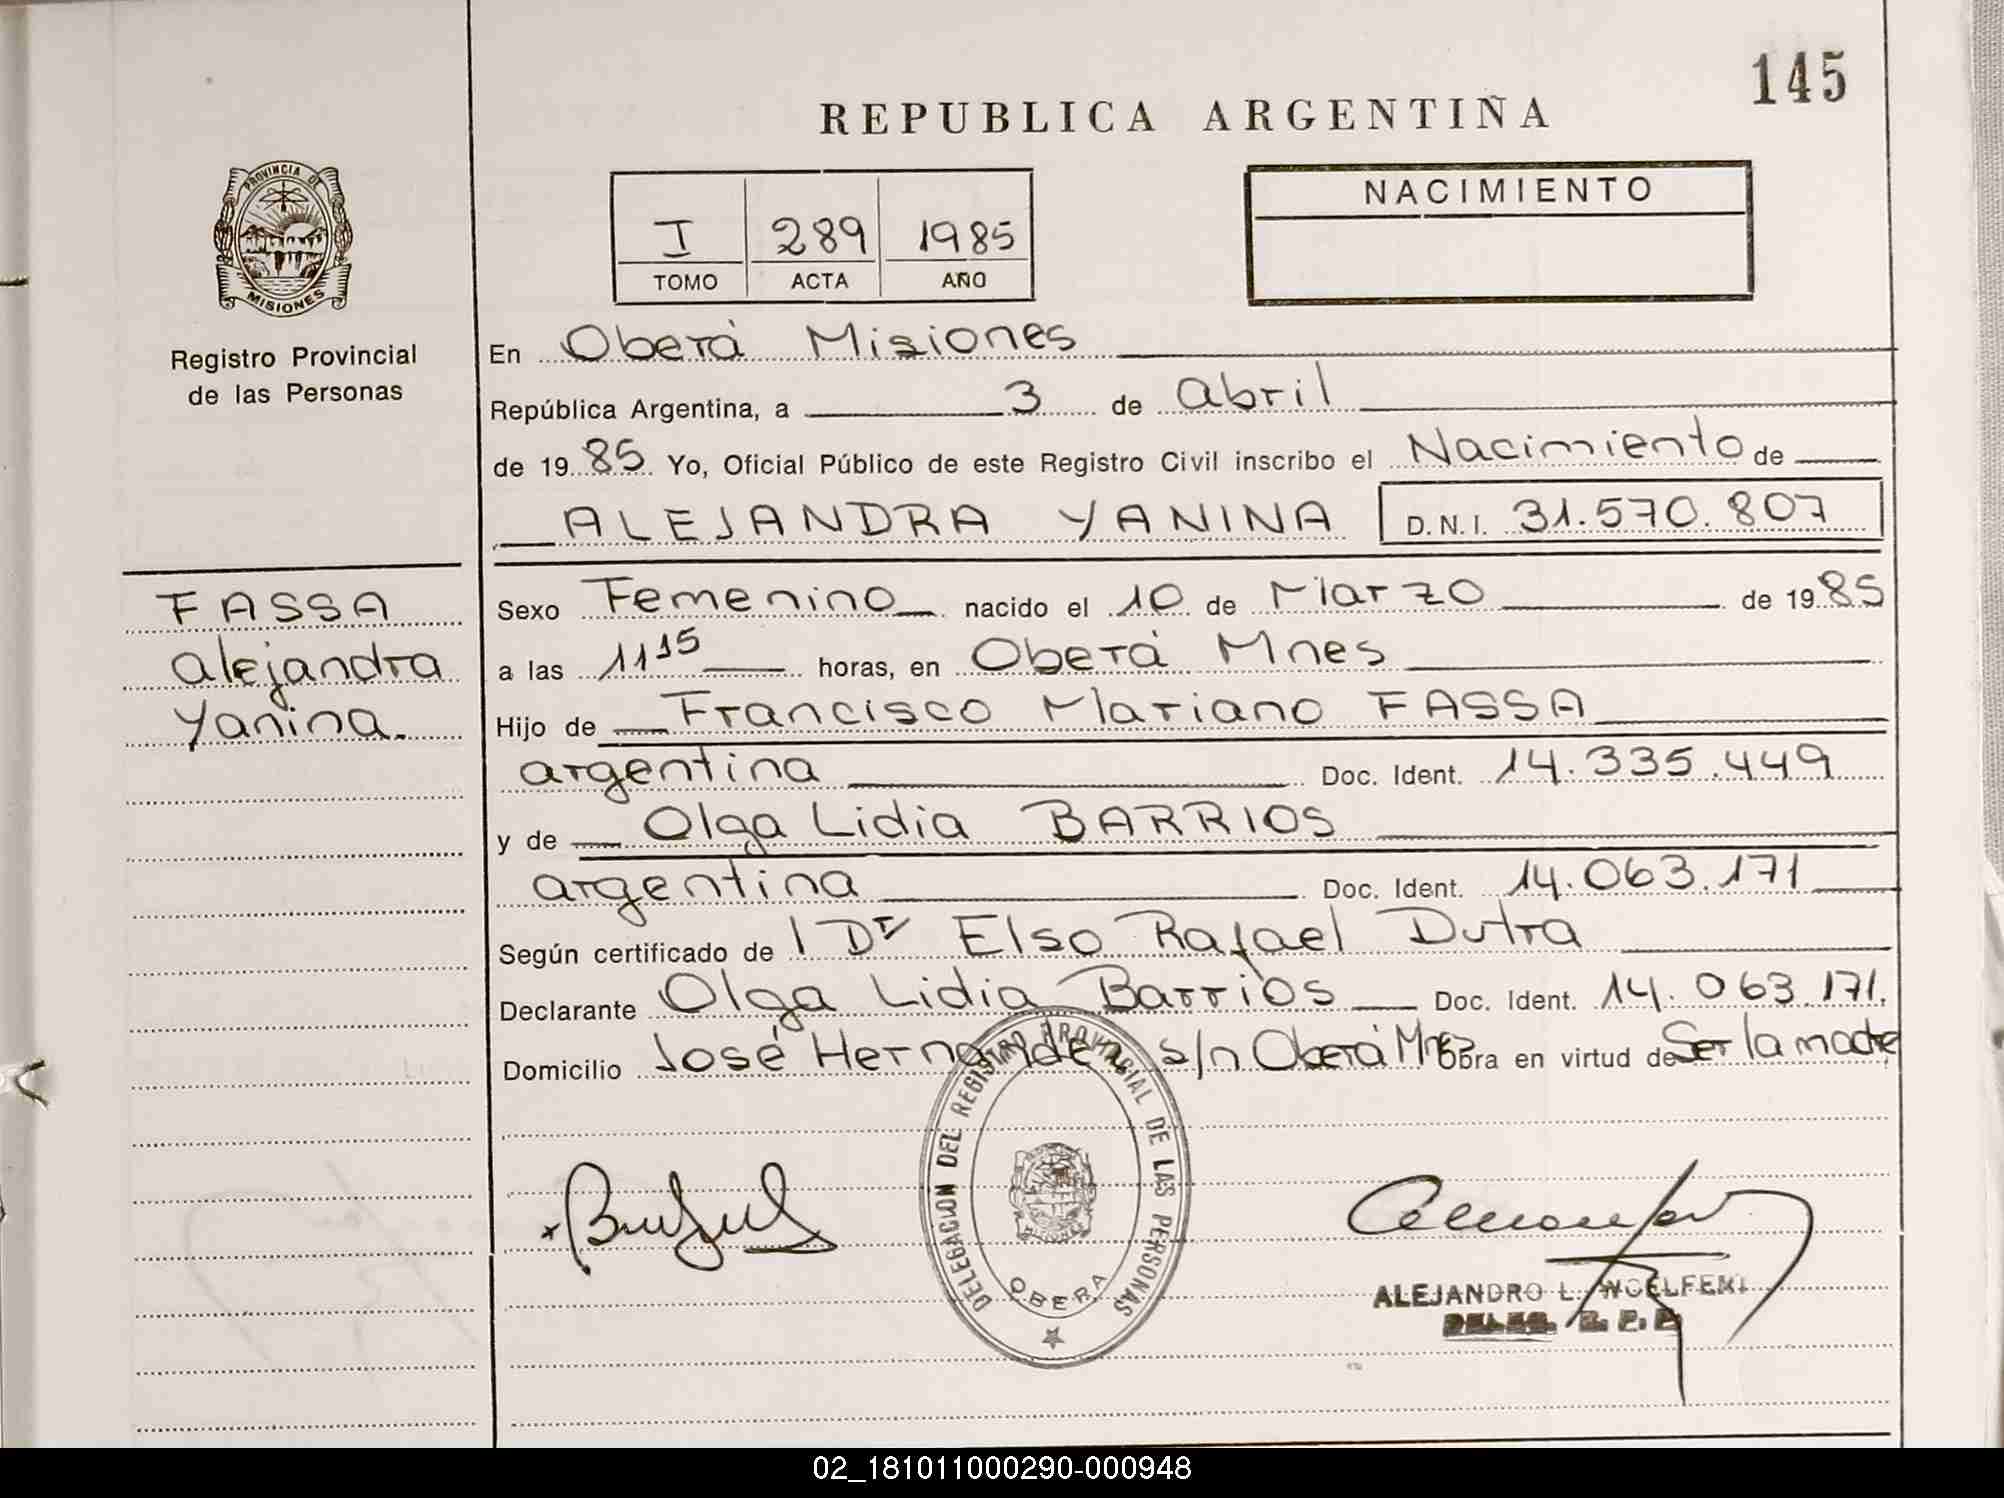 145
REPUBLICA ARGENTINA
PROVINCIA DE
MISIONES
Registro Provincial
de las Personas
I 289 1985
TOMO ACTA AÑO
NACIMIENTO
En Oberá Misiones
República Argentina, a 3 de abril
de 1985 Yo, Oficial Público de este Registro Civil inscribo el Nacimiento de
ALEJANDRA YANINA D.N.I. 31.570.807
FASSA
Alejandra
Yanina.
Sexo Femenino nacido el 10 de Marzo de 1985
a las 11 15 horas, en Oberá Mnes
Hijo de Francisco Mariano FASSA
argentina Doc. Ident. 14.335.449
y de Olga Lidia BARRIOS
argentina Doc. Ident. 14.063.171
Según certificado de l Dr Elso Rafael Dutra
Declarante Olga Lidia Barrios Doc. Ident. 14.063.171.
Domicilio José Hernández s/n Oberá Mnes Obra en virtud de Ser la madre
DELEGACION DEL REGISTRO PROVINCIAL DE LAS PERSONAS
OBERA
ALEJANDRO L.
02_181011000290-000948